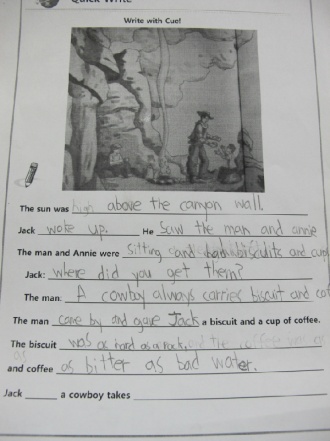 Quick Write
Write with Cue!
The sun was high above the canyon wall.
Jack woke up. He saw the man and annie
The man and Annie were sitting and biscuits and cup
Jack: where did you get them?
The man: A cowboy always carries biscuit and cof
The man came by and gave Jack a biscuit and a cup of coffee.
The biscuit was as hard as a rock. and the coffee was as
and coffee as bitter as bad water.
Jack ______ a cowboy takes